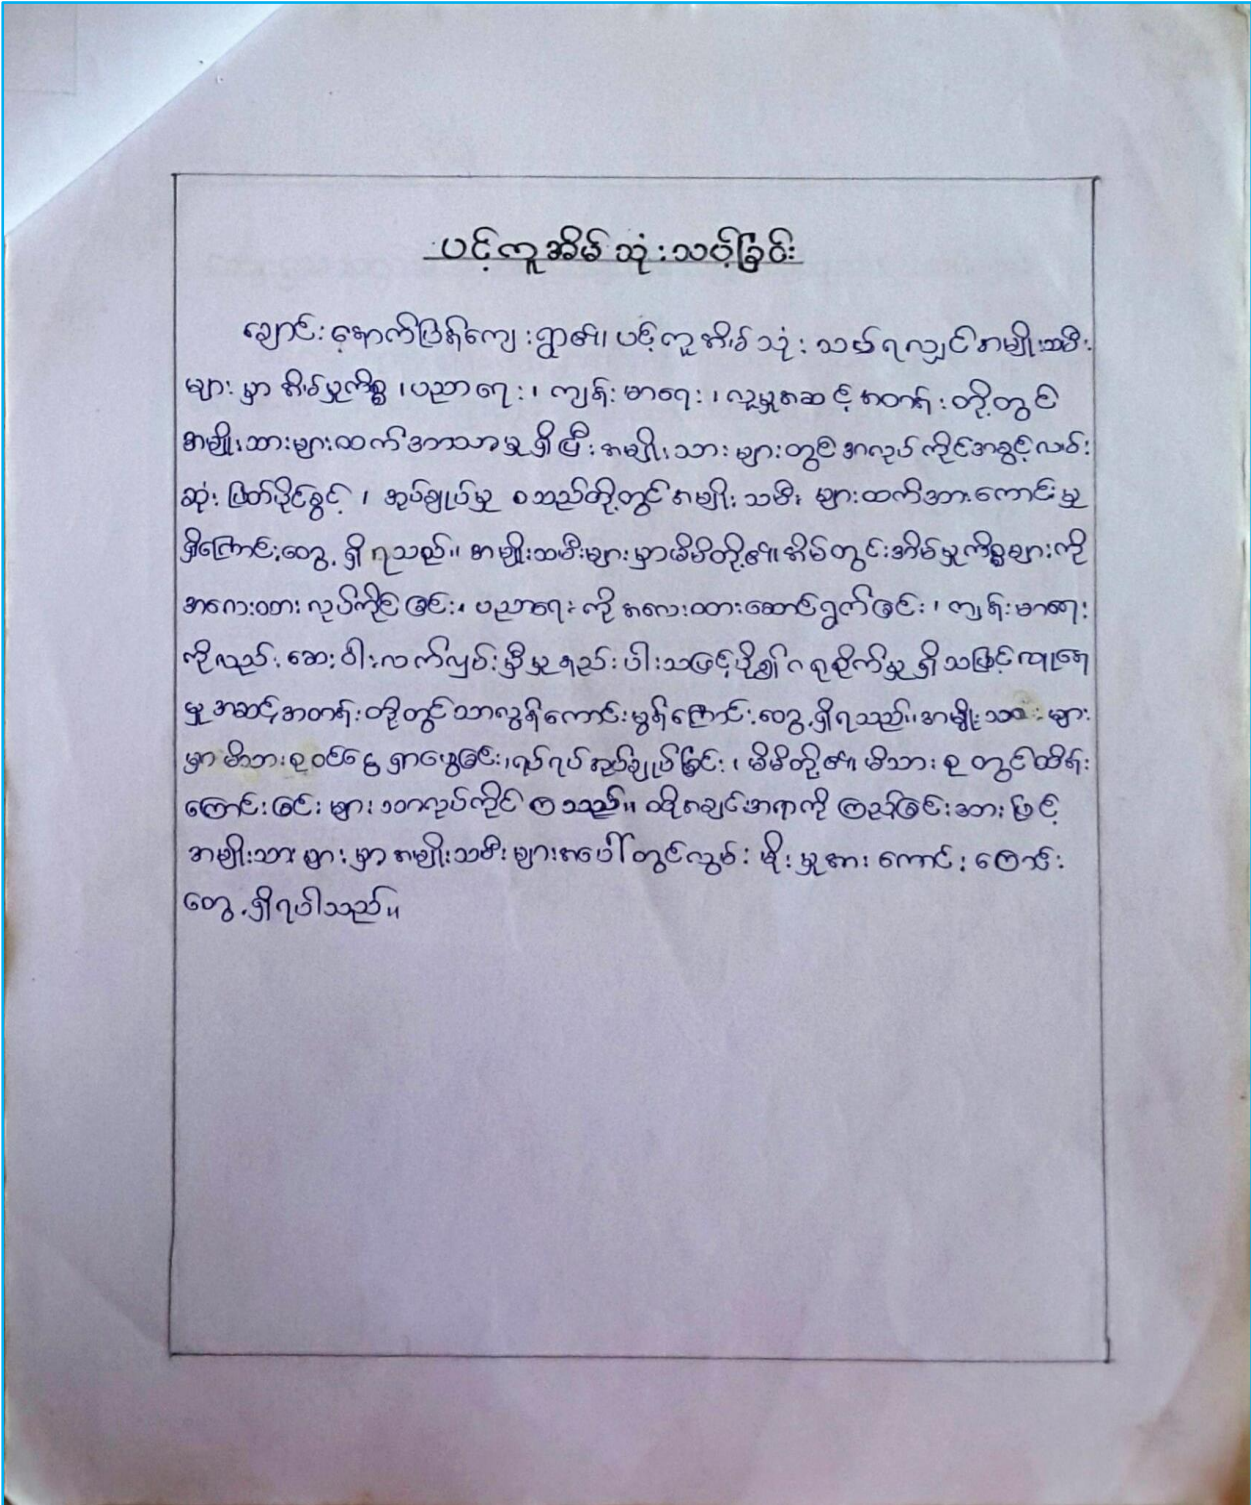 ပင့်ကူအိမ်သုံးသပ်ခြင်း
ချောင်းနောက်ပြန်ကျေးရွာ၏ ပင့်ကူအိမ်သုံးသပ်ရလျှင်အမျိုးသမီး
များမှာ အိမ်မှုကိစ္စ ၊ ပညာရေး ၊ ကျန်းမာရေး ၊ လူမှုအဆင့်အတန်းတို့တွင်
အမျိုးသားများထက်အားသာမှုရှိပြီး အမျိုးသားများတွင်အလုပ်ကိုင်အခွင့်လမ်း
ဆုံးဖြတ်ပိုင်ခွင့် ၊ အုပ်ချုပ်မှု စသည်တို့တွင်အမျိုးသမီးများထက်အားကောင်းမှု
ရှိကြောင်းတွေ့ရှိရသည်။ အမျိုးသမီးများမှာမိမိတို့၏အိမ်တွင်းအိမ်မှုကိစ္စများကို
အလေးထားလုပ်ကိုင်ခြင်း၊ ပညာရေးကိုအလေးထားဆောင်ရွက်ခြင်း ၊ ကျန်းမာရေး
ကိုလည်းဆေးဝါးလက်လှမ်းမှီမှုနည်းပါးသဖြင့်ပို၍ဂရုစိုက်မှုရှိသဖြင့်လူနေ
မှုအဆင့်အတန်းတို့တွင်သာလွန်ကောင်းမွန်ကြောင်းတွေ့ရှိရသည်။အမျိုးသားများ
မှာမိသားစုဝင်ငွေရှာဖွေခြင်း၊ရပ်ရွာအုပ်ချုပ်ခြင်း ၊ မိမိတို့၏မိသားစုတွင်ထိန်း
ကြောင်းခြင်းများသာလုပ်ကိုင်ကြသည်။ ထိုအချင်းအရာကိုကြည့်ခြင်းအားဖြင့်
အမျိုးသားများမှာအမျိုးသမီးများအပေါ်တွင်လွှမ်းမိုးမှုအားကောင်းကြောင်း
တွေ့ရှိရပါသည်။